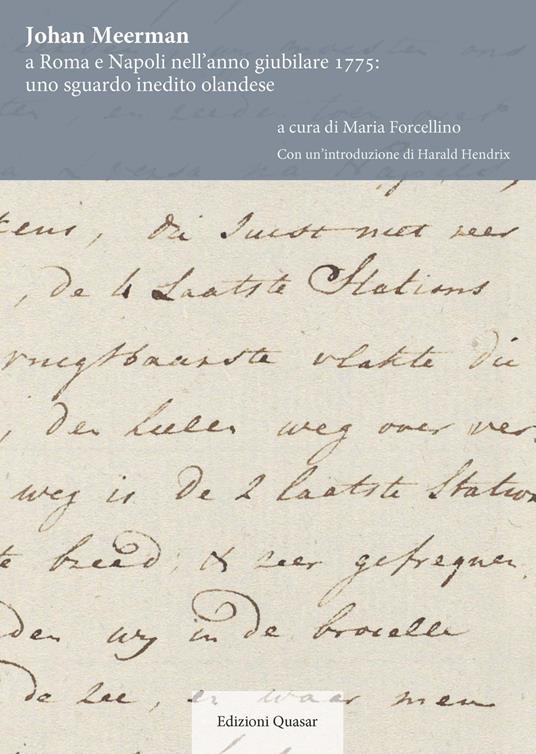 Johan Meerman
a Roma e Napoli nell'anno giubilare 1775:
uno sguardo inedito olandese
a cura di Maria Forcellino
Con un'introduzione di Harald Hendrix
die Juist niet zeer
, de 4 Laatste Stations
vlakte die
, den weg over ver
weg is de 2 laatste Station
te breed, & zeer gefrequen
den wy in de
de Zee, en waar men
Edizioni Quasar